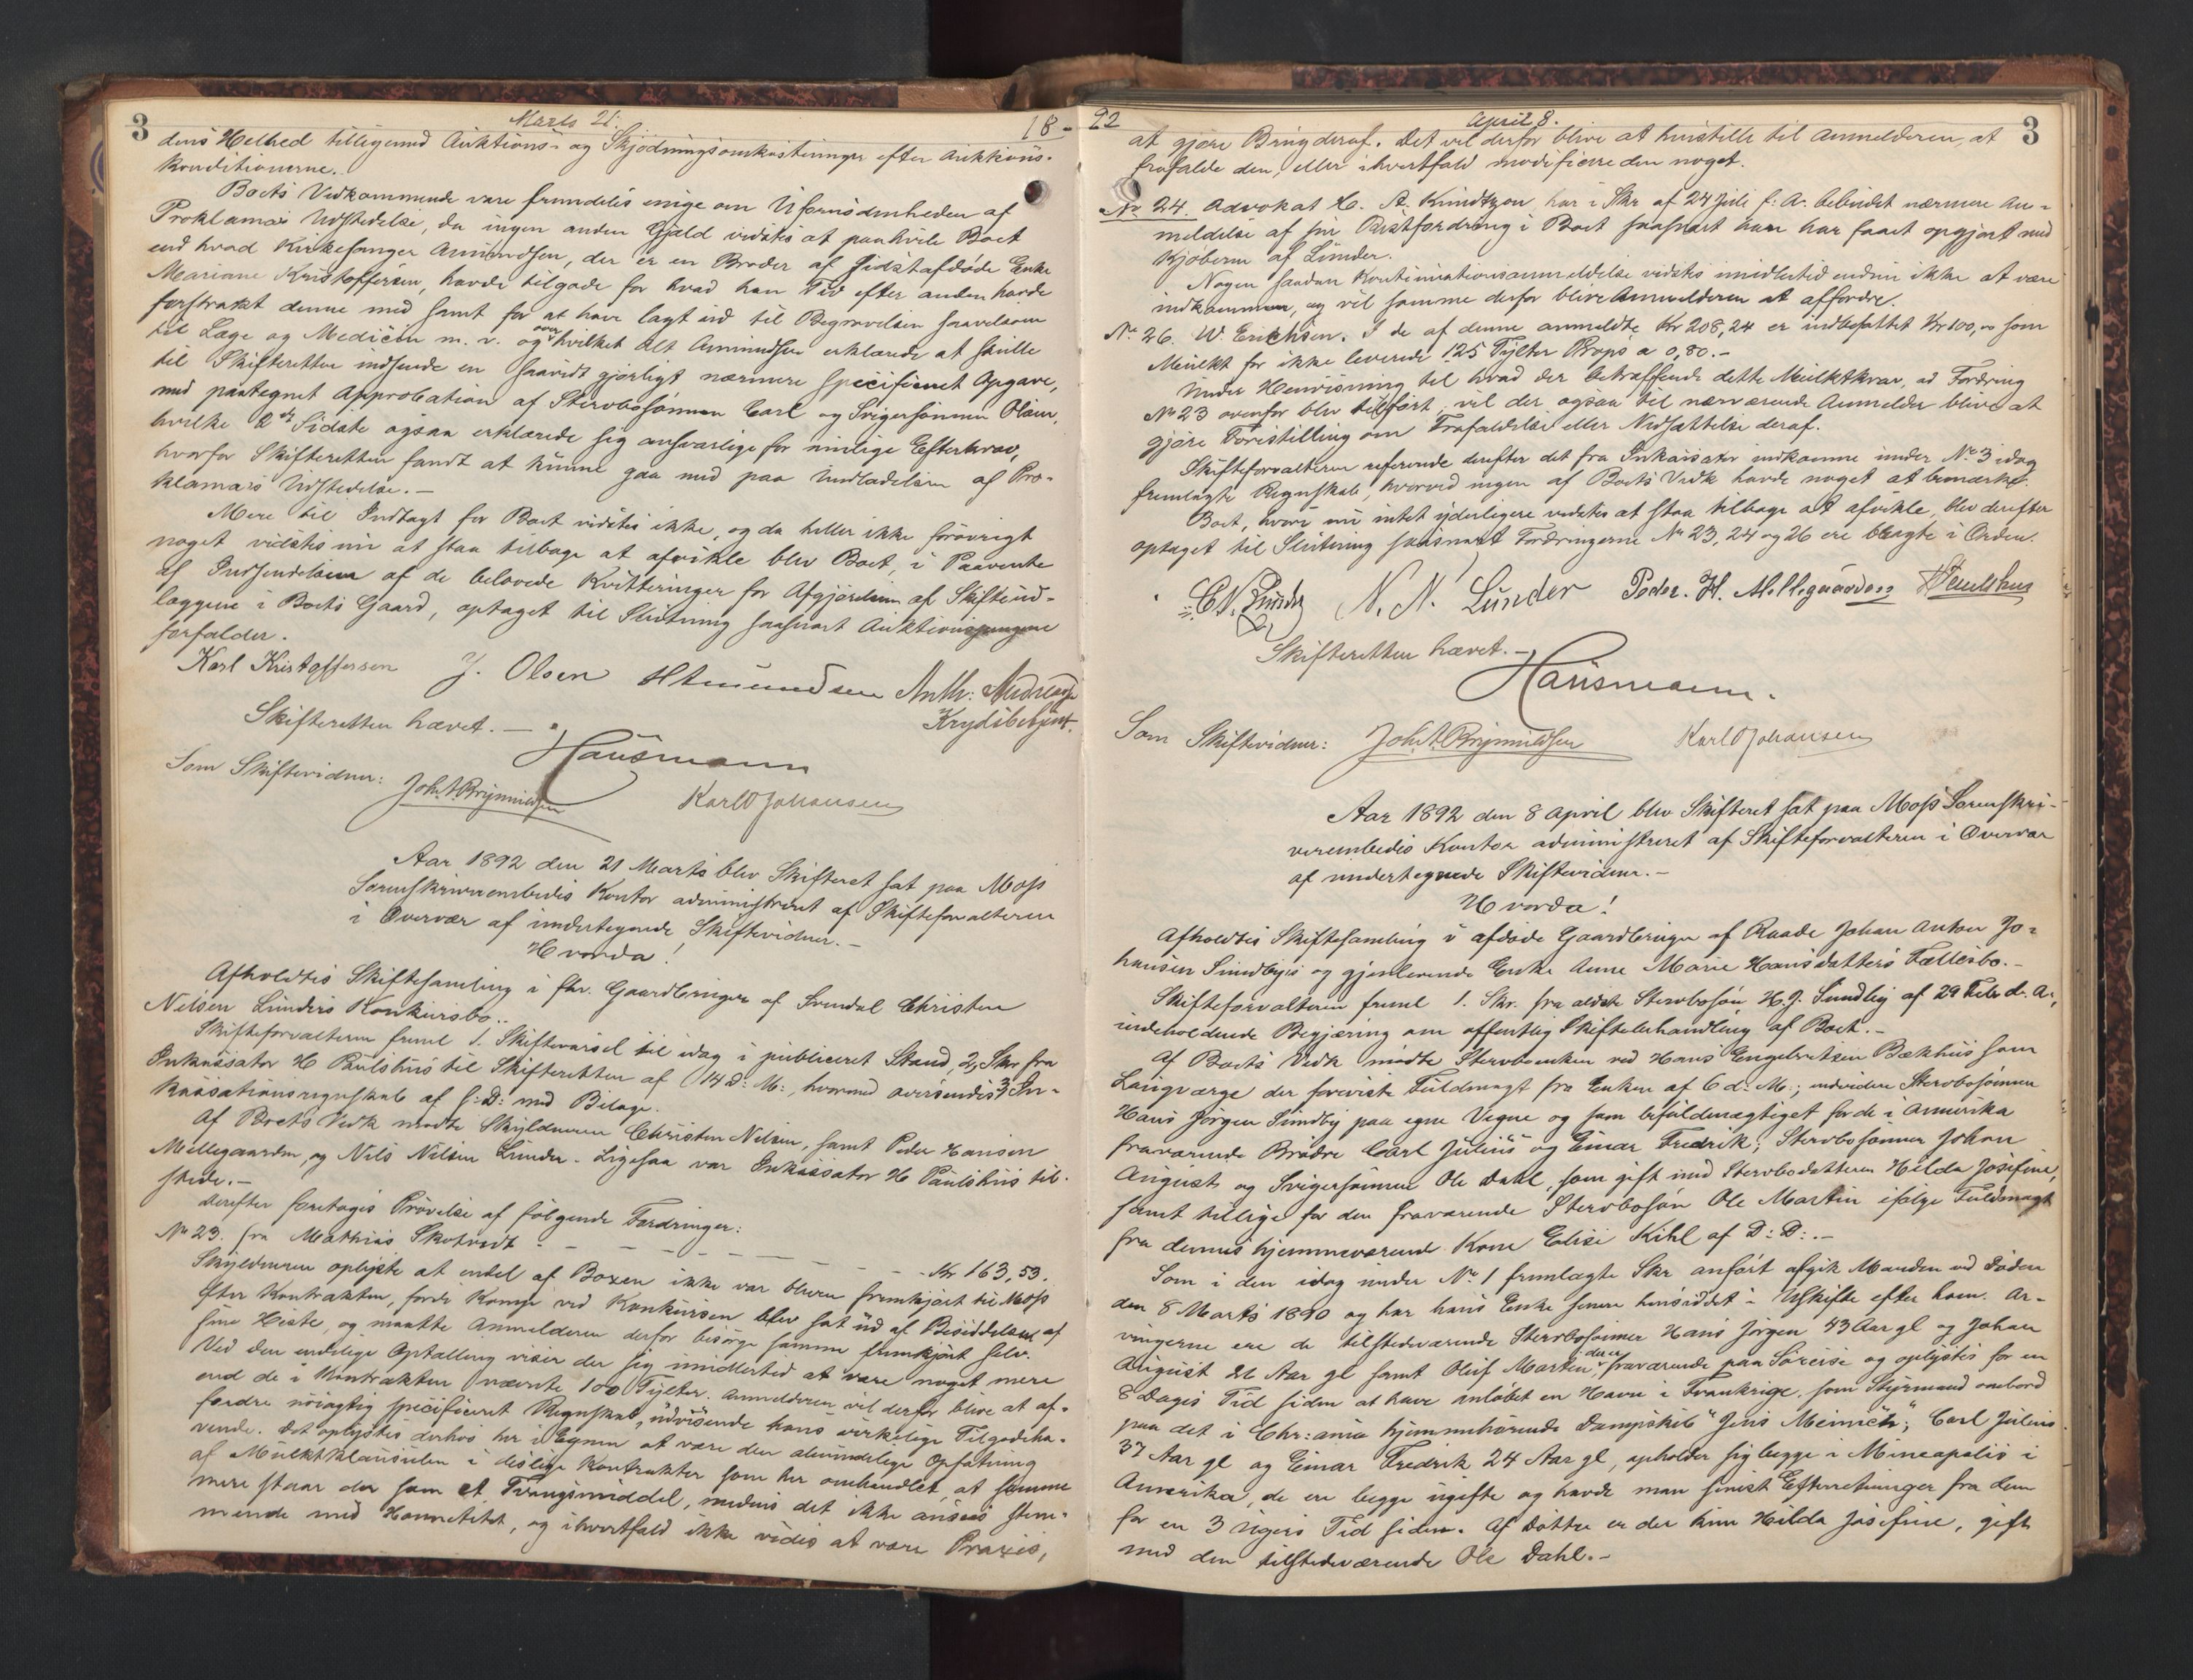 3
Marts 21.
18-
dens Helhed tilligemed Auktions- og Skjödningsomkostninger efter Auktions-
konditionerne.
Boets Vedkommende vare fremdeles enige om Ufornödenheden af
Proklamas Udstedelse, da ingen anden Gjæld vidstes at paahvile Boet
end hvad Kirkesanger Amundsen, der er en Broder af sidstafdöde Enke
Mariane Kristoffersen, havde tilgode for hvad han Tid efter anden havde
forstrakt denne med samt for at have lagt ud til Begravelsen saavelsom
til Læge og Medicin m. v. og over hvilket Alt Amundsen erklærede at skulle
til Skifteretten indsende en saavidt gjörligt nærmere specificeret Opgave,
med paategnet Approbation af Stervbosönnen Carl og Svigersönnen Olsen,
hvilke 2de Sidste ogsaa erklærede sig ansvarlige for mulige Efterkrav,
hvorfor Skifteretten fandt at kunne gaa med paa Undladelsen af Pro-
klamas Udstedelse.-
Mere til Indtægt for Boet vidstes ikke, og da heller ikke forövrigt
noget vidstes nu at staa tilbage at afvikle blev Boet, i Paavente
af Indsendelsen af de belovede Kvitteringer for Afgjörelsen af Skifteud-
læggene i Boets Gaard, optaget til Slutning saasnart Auktionspengene
forfalder.
Karl Kristoffersen J. Olsen HAmundsen Anth: Andreas
Krydsbetjent.
Skifteretten hævet.-
Hausmann
Som Skiftevidner: Joh.A.Brynildsen Karl O Johansen
Aar 1892 den 21 Marts blev Skifteret sat paa Moss
Sorenskriverembedes Kontor administreret af Skifteforvalteren
i Overvær af undertegnede Skiftevidner.-
Hvorda!
Afholdtes Skiftesamling i fhv. Gaardbruger af Svendal Christen
Nilsen Lunders Konkursbo.-
Skifteforvalteren freml 1. Skiftevarsel til idag i publiceret Stand, 2, Skr fra
Inkassator H Paulshus til Skifteretten af 14 D: M:, hvormed oversendes 3, In-
kassationsregnskab af s: D: med Bilage.
Af Boets Vedk mödte Skyldneren Christen Nilsen, samt Peder Hansen
Mellegaarden, og Nils Nilsen Lunder. Ligesaa var Inkassator H Paulshus til-
stede.-
Derefter foretoges Prövelse af fölgende Fordringer:
No 23. fra Mathias Skotvedt - - - - - - - - Kr 163,53.
Skyldneren oplyste at endel af Boxen ikke var bleven fremkjört til Moss
efter Kontrakten, fordi Komp. ved Konkursen blev sat ud af Besiddelsen af
sine Heste, og maatte Anmelderen derfor besörge samme fremkjört selv.
Ved den endelige Optælling viser der sig imidlertid at være noget mere
end de i Kontrakten nævnte 100 Tylter. Anmelderen vil derfor blive at af-
fordre nöiagtig specificeret Regnskab, udvisende hans virkelige Tilgodeha-
vende. Det oplystes derhos her i Egnen at være den almindelige Opfatning
af Mulktklausulen i deslige Kontrakter som her omhandlet, at samme
mere staar der som et Tvangsmiddel, medens det ikke ansees stem-
mende med Honnetitet, og ihvertfald ikke vides at være Praxis,
92
April 8.
3
at gjöre Brug deraf. Det vil derfor blive at henstille til Anmelderen, at
frafalde den, eller ihvertfald modificere den noget.
No 24. Advokat C. A. Knudtzon har i Skr af 24 Juli f: A. bebudet nærmere An-
meldelse af sin Restfordring i Boet saasnart han har faaet opgjort med
Kjöberen af Lunder.
Nogen saadan Kontinuationsanmeldelse vidstes imidlertid endnu ikke at være
indkommen, og vil samme derfor blive Anmelderen at affordre.
No 26. W. Erichsen. I de af denne anmeldte Kr 208,24 er indbefattet Kr 100,00 som
Mulkt for ikke leverede 125 Tylter Props a 0,80.-
Under Henvisning til hvad der betræffende dette Mulktkrav, ad Fordring
No 23 ovenfor blev tilfört, vil der ogsaa til nærværende Anmelder blive at
gjöre Forestilling om Frafaldelse eller Nedsættelse deraf.
Skifteforvalteren refererede derefter det fra Inkassator indkomne under No 3 idag
fremlagte Regnskab, hvorved ingen af Boets Vedk havde noget at bemærke.
Boet, hvori nu intet yderligere vidstes at staa tilbage at afvikle, blev derefter
optaget til Slutning saasnart Fordringerne No 23, 24 og 26 ere bragte i Orden.
N. N. Lunder Peder. H. Mellegaarden HPaulshus
Skifteretten hævet.-
Hausmann.
Som Skiftevidner: Joh.A.Brynildsen Karl O Johansen
Aar 1892 den 8 April blev Skifteret sat paa Moss Sorenskri-
verembedes Kontor administreret af Skifteforvalteren i Overvær
af undertegnede Skiftevidner.-
Hvorda!
Afholdtes Skiftesamling i afdöde Gaardbruger af Raade Johan Anton Jo-
hansen Sundbyes og gjenlevende Enke Anne Marie Hansdatters Fællesbo.-
Skifteforvalteren freml 1. Skr. fra ældste Stervbosön H. J. Sundby af 29 Febr d. A.,
indeholdende Begjæring om offentlig Skiftebehandling af Boet.-
Af Boets Vedk mödte Stervboenken ved Hans Engebretsen Bækhus som
Laugværge der foreviste Fuldmagt fra Enken af 6 d: M.; endvidere Stervbosönnen
Hans Jörgen Sundby paa egne Vegne og som befuldmægtiget for de i Amerika
fraværende Brödre Carl Julius og Einar Fredrik; Stervbosönnen Johan
August og Svigersönnen Ole Dahl, som gift med Stervbodatteren Hilda Josefine,
samt tillige for den fraværende Stervbosön Ole Martin ifölge Fuldmagt
fra dennes hjemmeværende Kone Elise Kihl af D: D:.-
Som i den idag under No 1 fremlagte Skr anfört afgik Manden ved Döden
den 8 Marts 1890 og har hans Enke senere hensiddet i Uskifte efter ham. Ar-
vingerne ere de tilstedeværende Stervbosönner Hans Jörgen 43 Aar gl og Johan
August 26 Aar gl samt Oluf Marten, der er fraværende paa Söreise og oplystes for en
8 Dages Tid siden at have anlöbet en Havn i Frankrige, som Styrmand ombord
paa det i Chr:ania hjemmehörende Dampskib "Jens Meinich"; Carl Julius
37 Aar gl og Einar Fredrik 24 Aar gl, opholder sig begge i Mineapolis i
Amerika, de ere begge ugifte og havde man senest Efterretninger fra dem
for en 3 Ugers Tid siden. Af Döttre er der kun Hilda Josefine, gift
med den tilstedeværende Ole Dahl.-